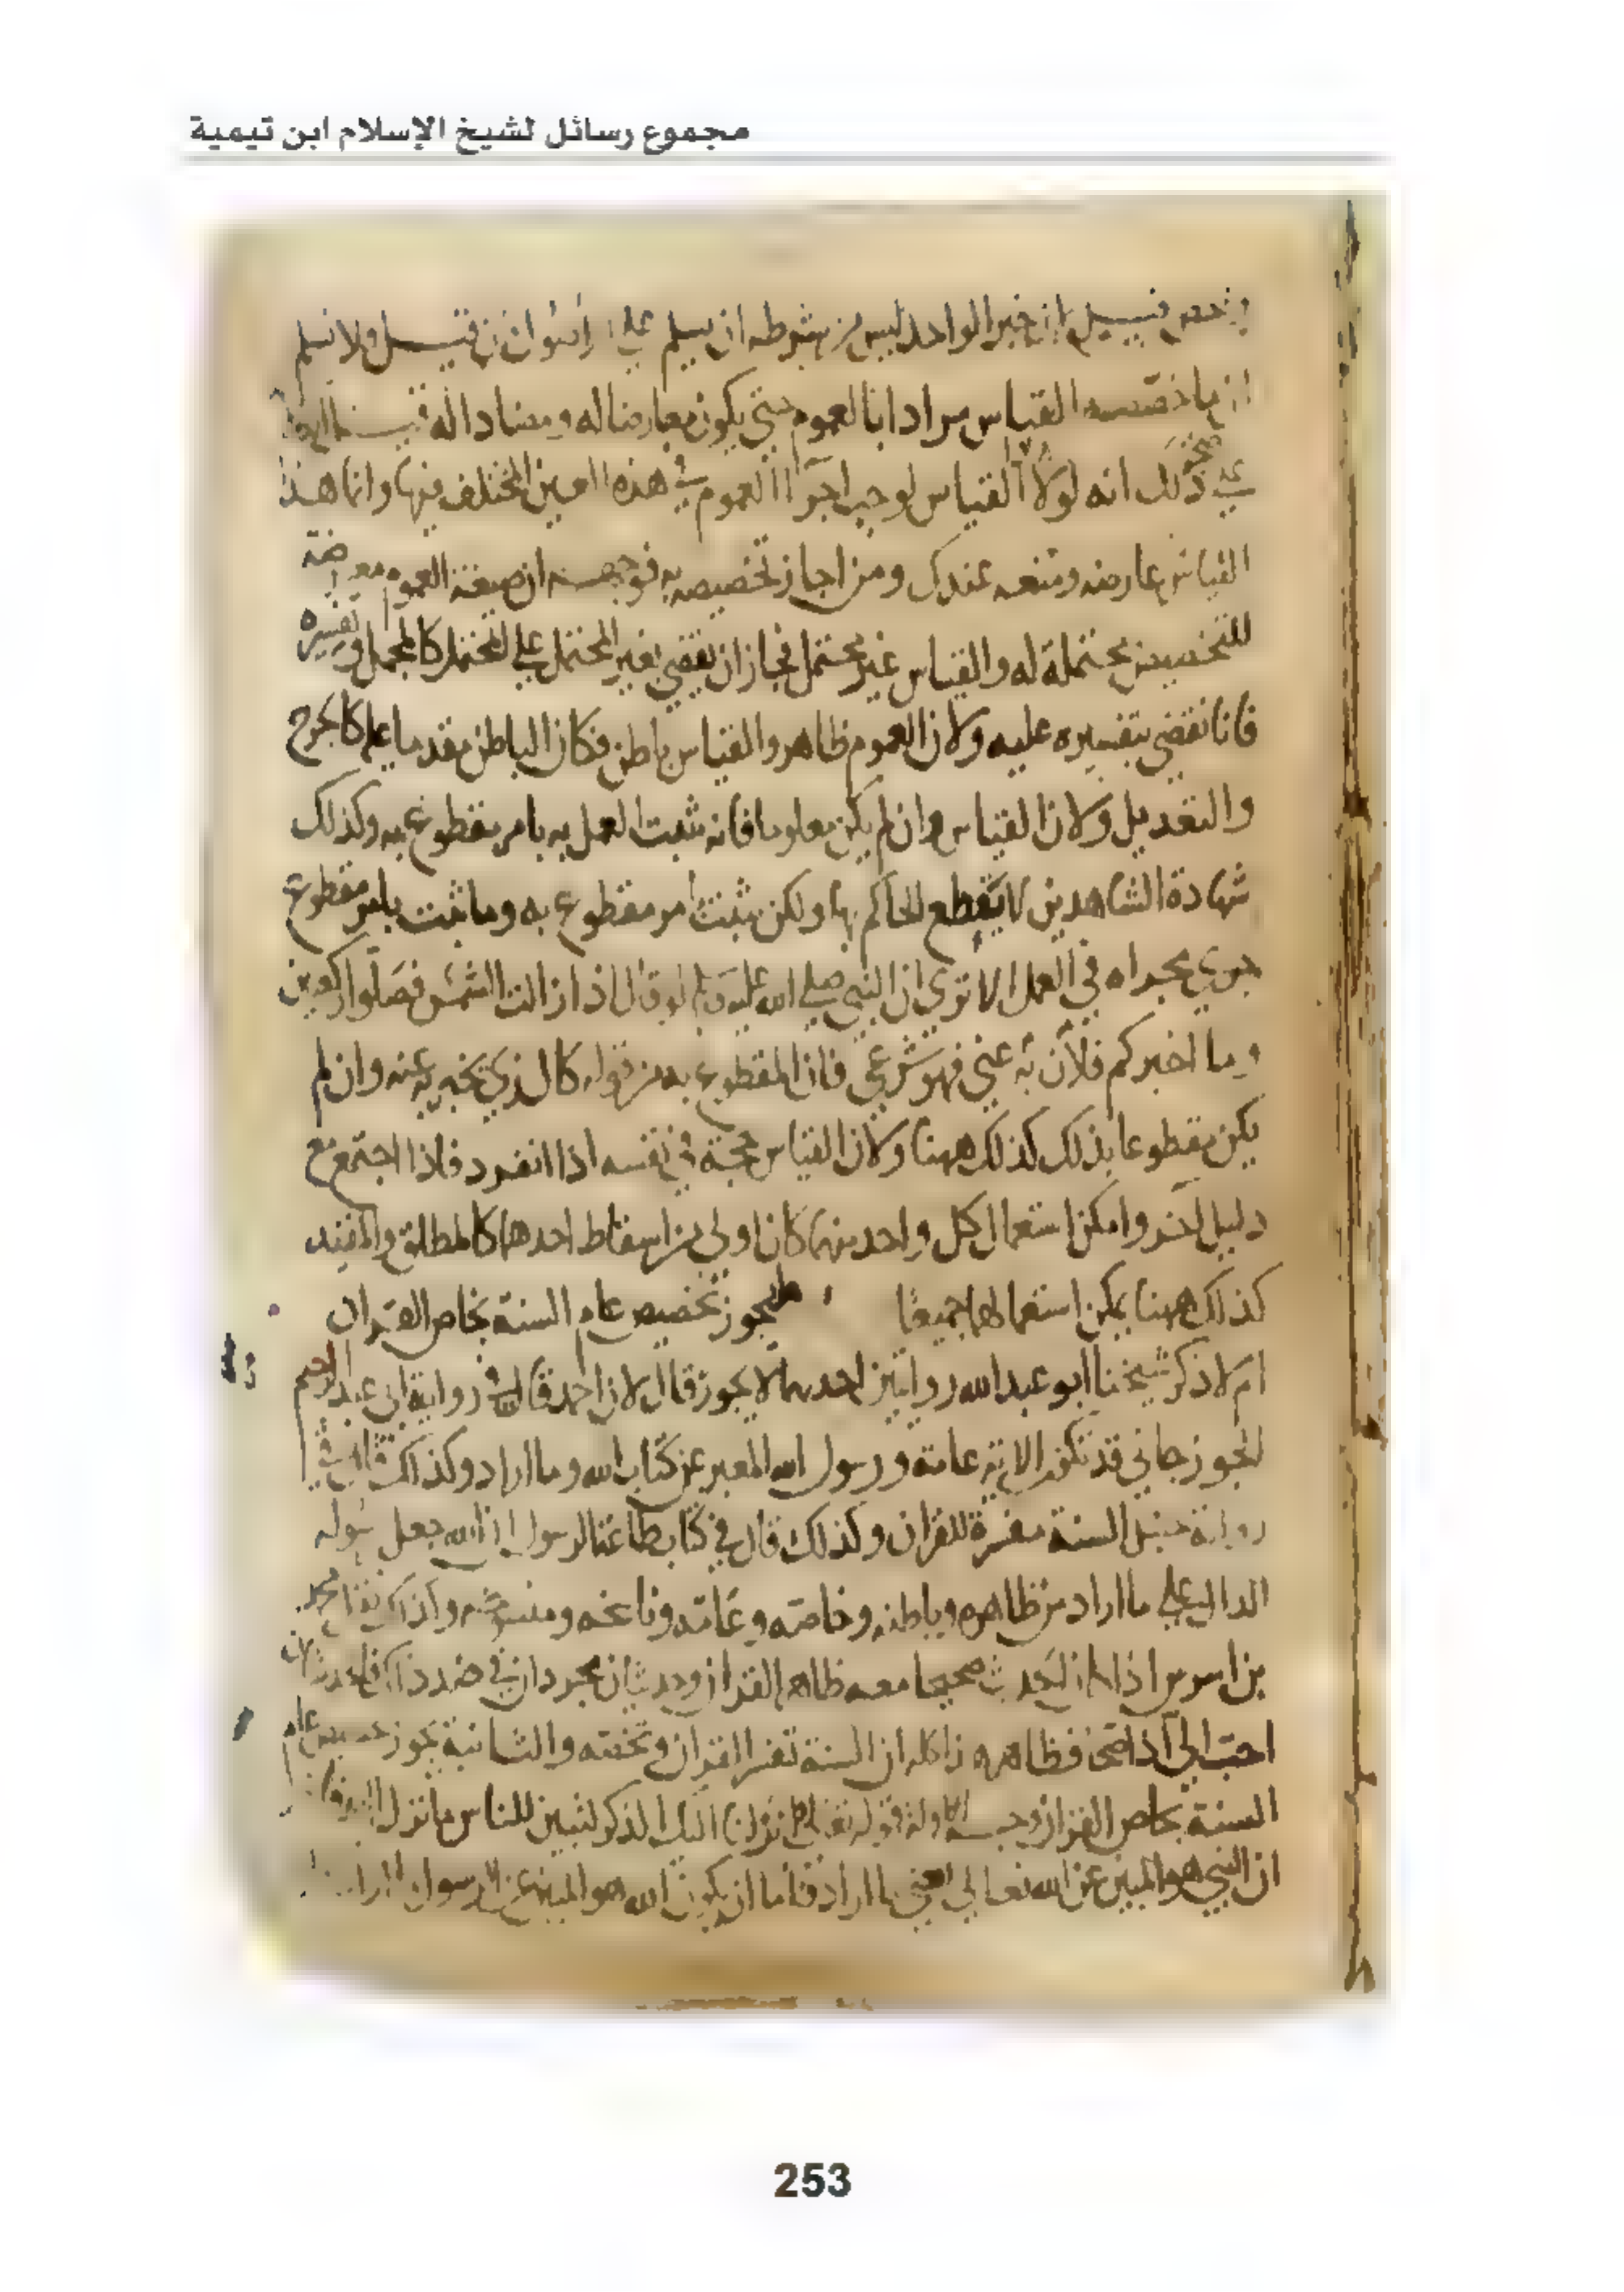 مجموع رسائل لشيخ الإسلام ابن تيمية
قيل خبر الواحد ليس من شرطه ان يسلم على ان قيل ولا نسلم
القياس مرادا بالعموم حتى يكون معارضا له ومضادا له
ذلك انه لولا القياس لوجب اجرا العموم في هذه العين المختلف فيها وانما هذا
القياس عارضه ومنعه عندك ومن اجاز تخصيصه به فوجهه ان صيغة العموم معرضة
للتخصيص محتملة له والقياس غير محتمل فجاز ان يقضي بغير المحتمل على المحتمل كالمجمل وتفسيره
فانا نقضي بتفسيره عليه ولان العموم ظاهر والقياس باطن فكان الباطن مقدما عليه كالجرح
والتعديل ولان القياس وان لم يكن معلوما فانه ثبت العمل به بامر مقطوع به وكذلك
شهادة الشاهدين لا يقطع الحاكم بها ولكن ثبتت امر مقطوع به وما ثبت بامر مقطوع
جري مجراه في العمل الا تري ان النبي صلى الله عليه وسلم لو قال اذا زالت الشمس فصلوا ركعتين
وما اخبركم فلان به عني فهو شرعي فان المقطوع به من قوله كالذي يخبر به عنه وان لم
يكن مقطوعا بذلك كذلك ههنا ولان القياس حجة في نفسه اذا انفرد فاذا اجتمع مع
دليل اخر وامكن استعمال كل واحد منهما كان اولى من اسقاط احدهما كالمطلق والمقيد
كذلك ههنا يمكن استعمالهما جميعا هل يجوز تخصيص عام السنة بخاص القران
ام لا ذكر شيخنا ابو عبد الله روايتين احدهما لا يجوز قال لان احمد قال في رواية ابي عبد الرحيم
الجوزجاني قد تكون الاية عامة ورسول الله المعبر عن كتاب الله وما اراد وكذلك قال في
رواية حنبل السنة مفسرة للقران وكذلك قال في كتاب طاعة الرسول ان الله جعل رسوله
الدال على ما اراد من ظاهره وباطنه وخاصه وعامه وناسخه ومنسوخه وكذلك نقل محمد
بن اشرس اذا كان الحديث صحيحا معه ظاهر القران وحديثان مجردان في ضد ذلك فالحديثان
احب الي اذا صحا فظاهر هذا كله ان السنة تفسر القران وتخصه والثانية يجوز تخصيص عام
السنة بخاص القران وجه الاولة قوله تعالى وانزلنا اليك الذكر لتبين للناس ما نزل اليهم
ان النبي هو المبين عن الله تعالى ما اراد فاما ان يكون الله هو المبين عن الرسول
253